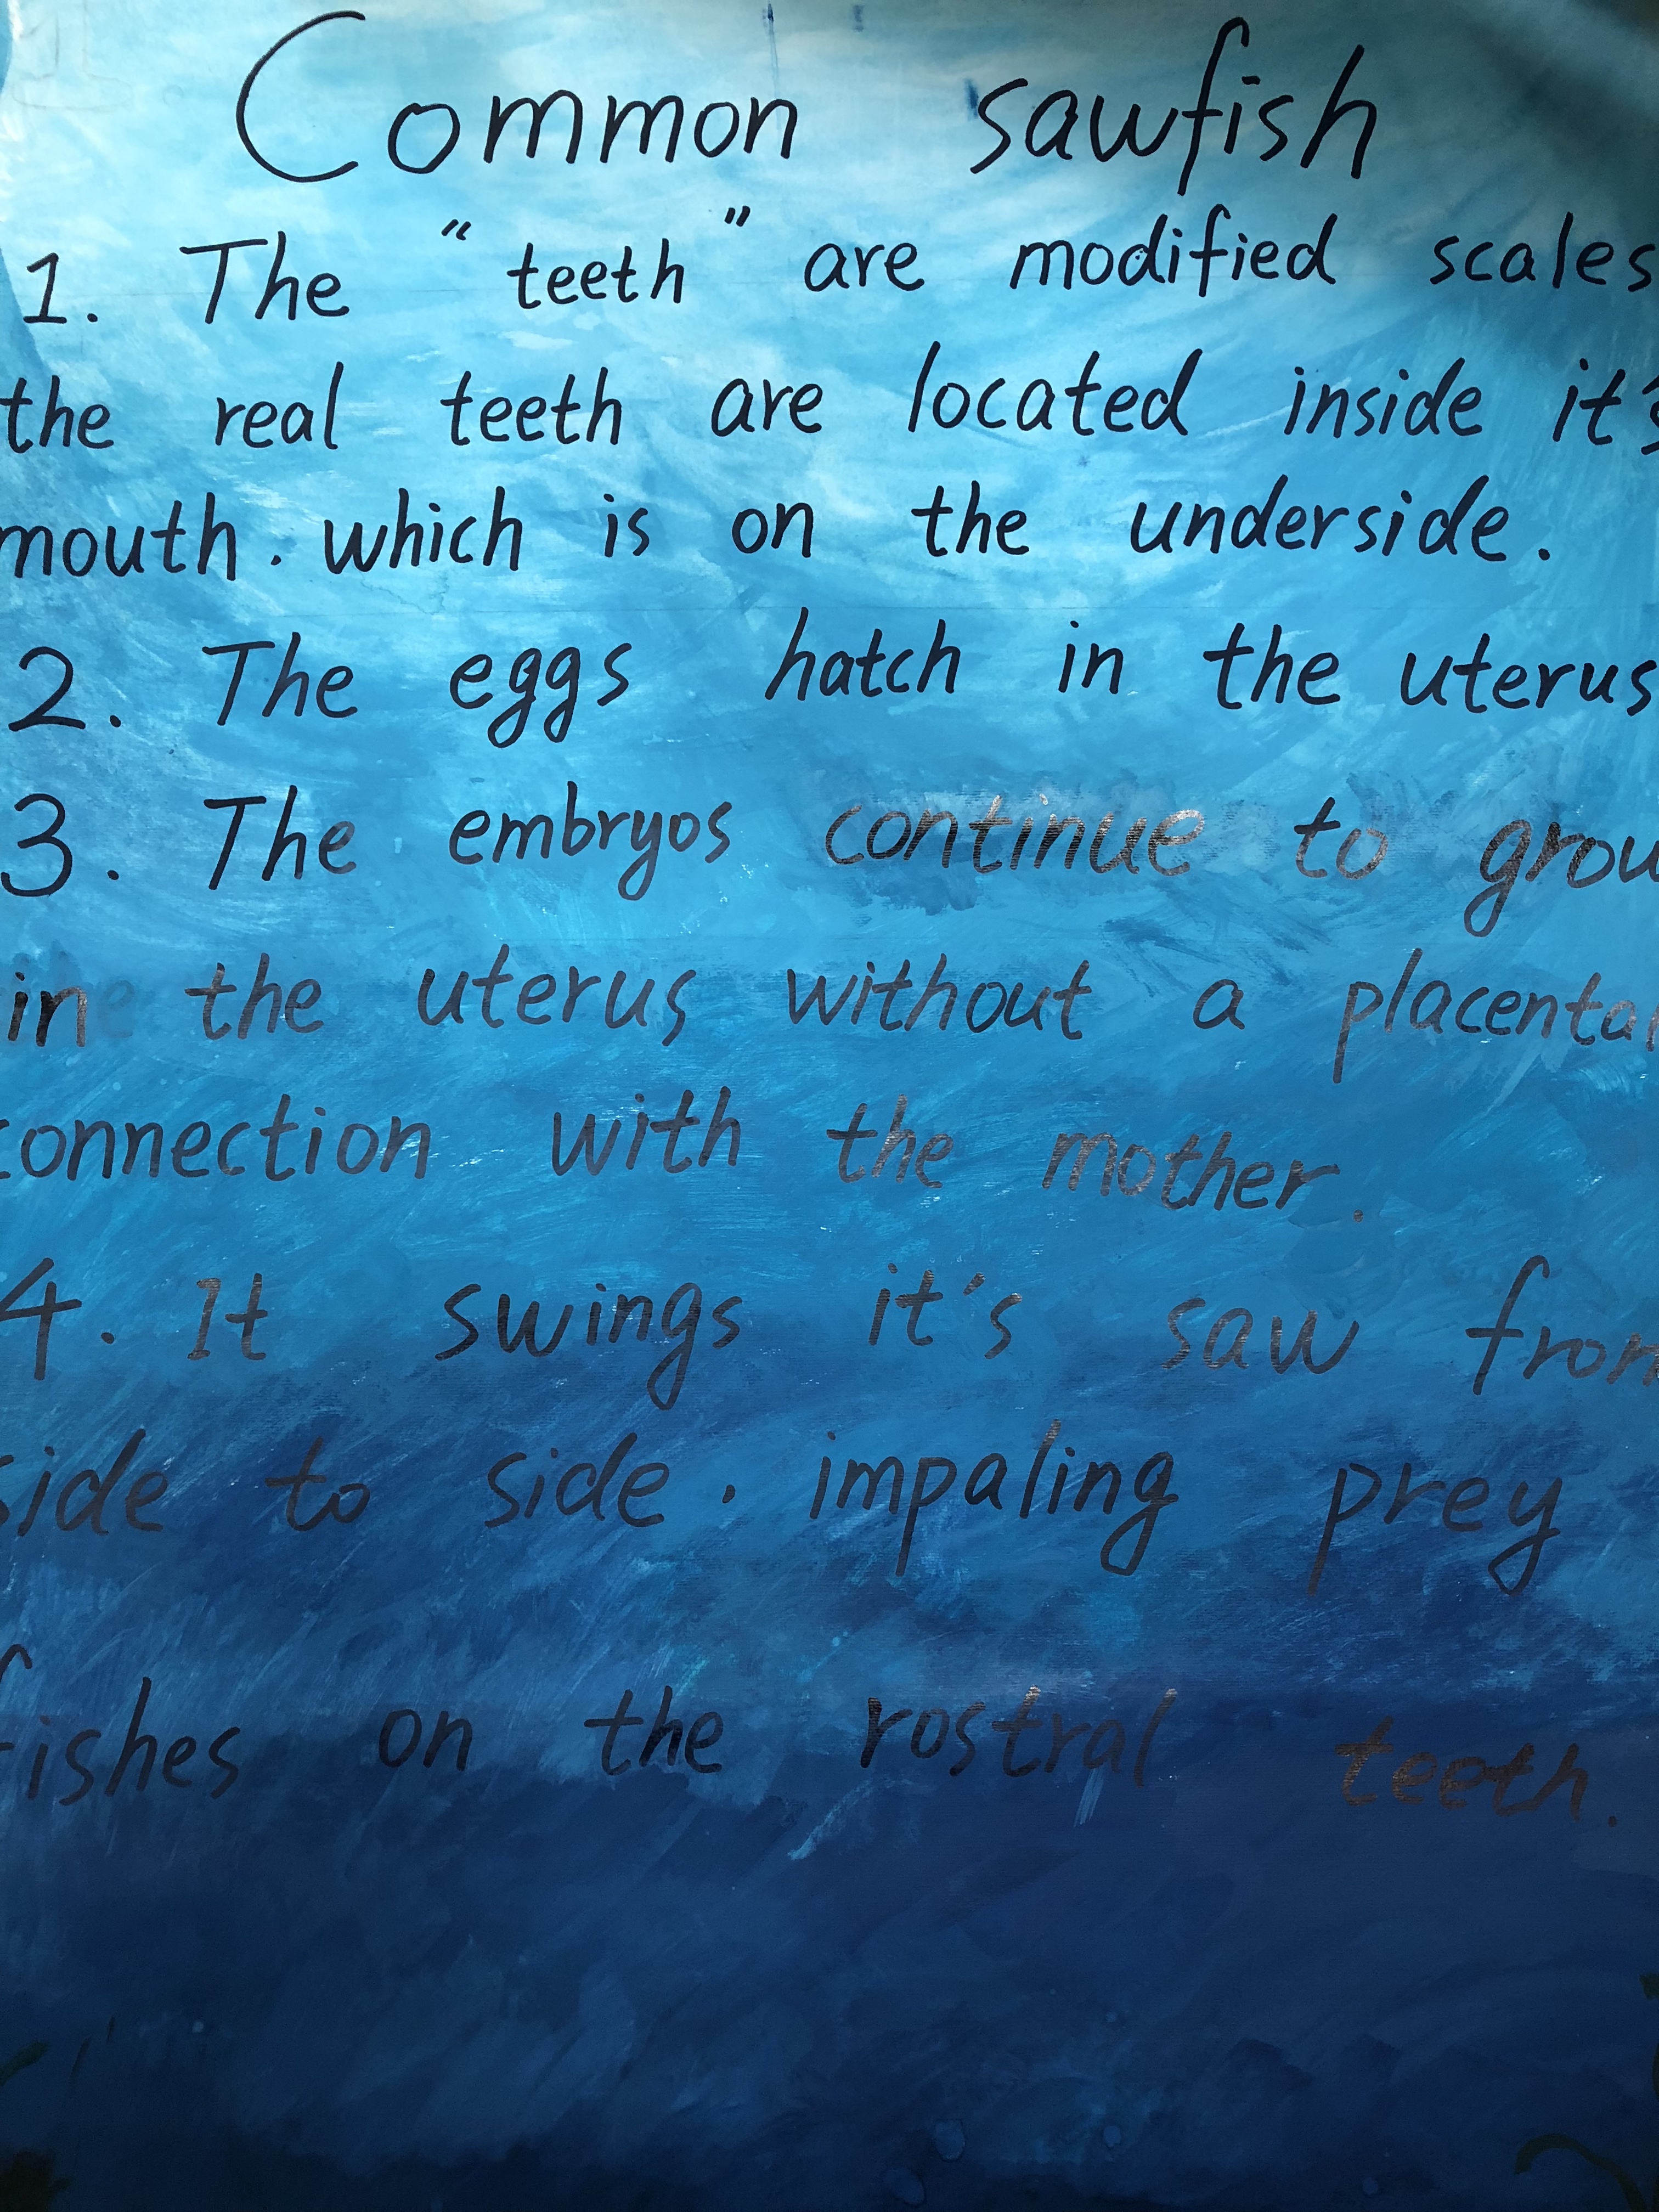 Common sawfish
1. The “teeth” are modified scales
the real teeth are located inside it's
mouth. which is on the underside.
2. The eggs hatch in the uterus
3. The embryos continue to grow
in the uterus without a placental
connection with the mother.
4. It swings it's saw from
side to side. impaling prey
fishes on the rostral teeth.